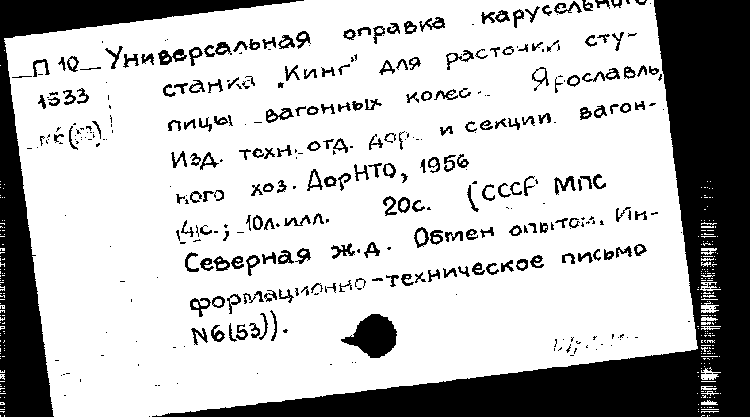 П 10 Универсальная оправка карусельного
1533 станка „Кинг" для расточки сту-
№6(53) пицы вагонных колес. Ярославль,
Изд. техн. отд. дор. и секции вагон-
ного хоз. ДорНТО, 1956
[4]с.; 10л.илл. 20с. (СССР МПС
Северная ж.д. Обмен опытом. Ин-
формационно-техническое письмо
N6(53)).